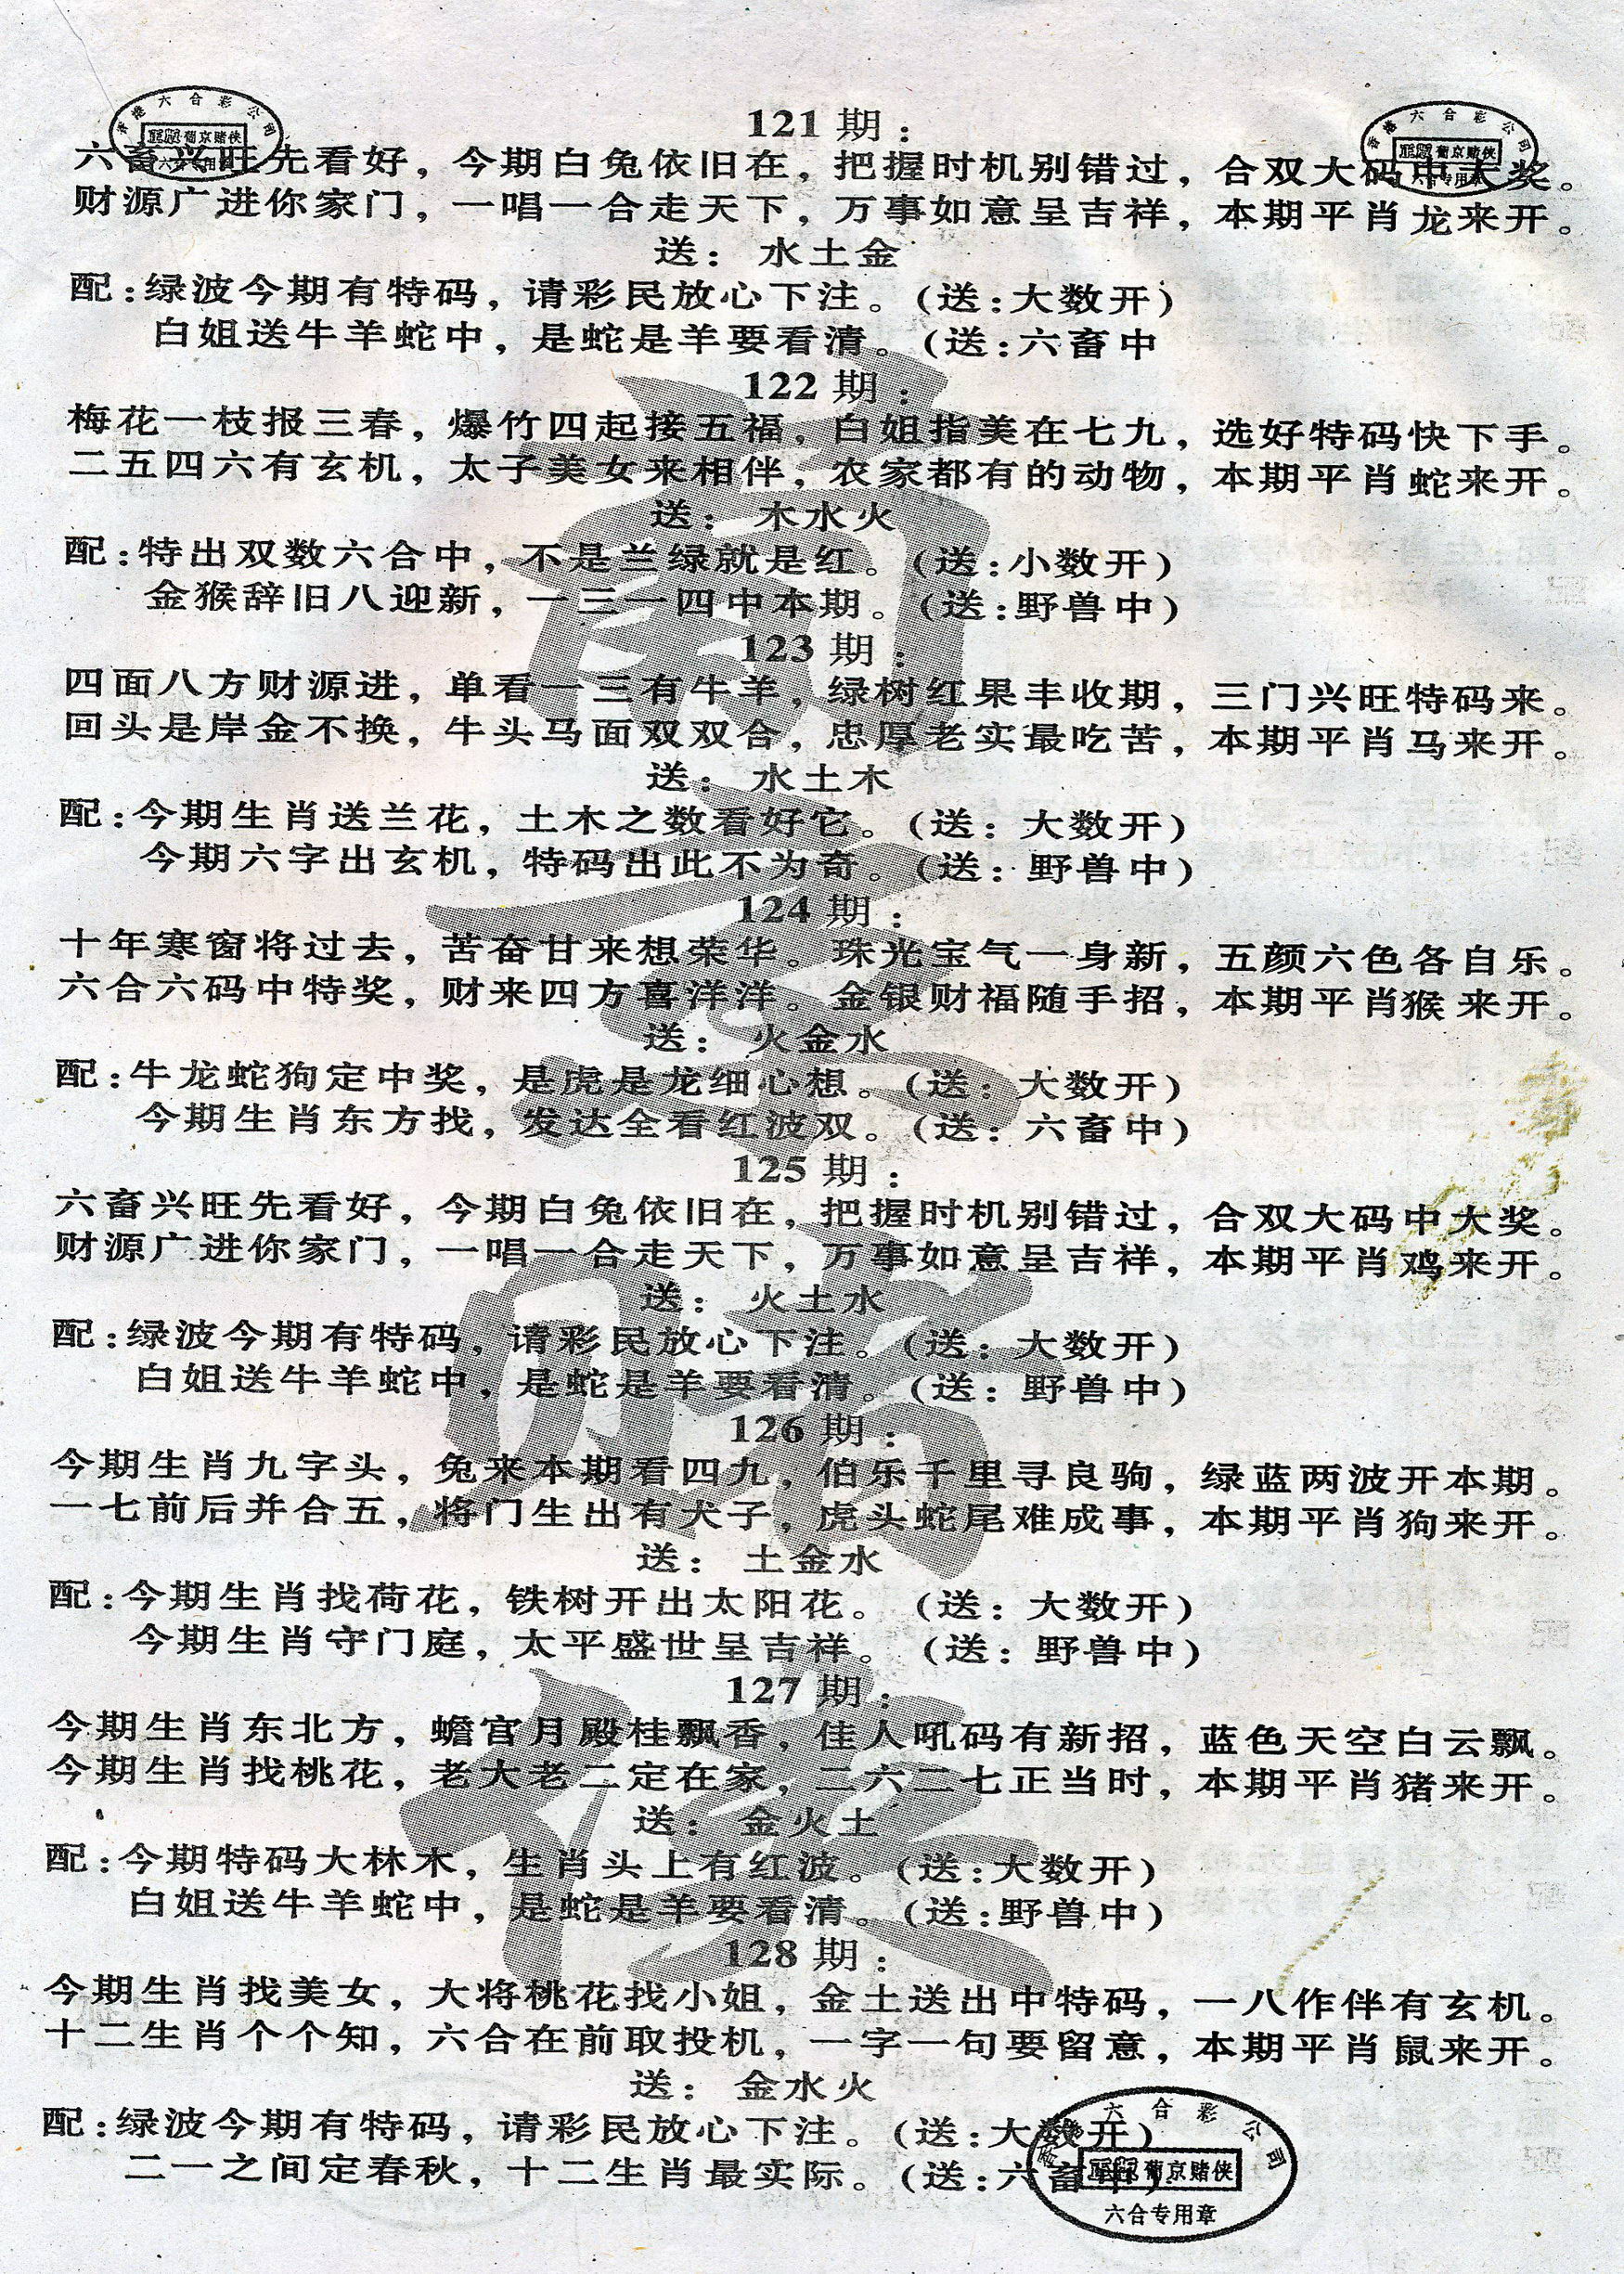 香港六合彩公司
葡京赌侠
六合专用章
香港六合彩公司
葡京赌侠
六合专用章
121期:
六畜兴旺先看好，今期白兔依旧在，把握时机别错过，合双大码中大奖。
财源广进你家门，一唱一合走天下，万事如意呈吉祥，本期平肖龙来开。
送: 水土金
配:绿波今期有特码，请彩民放心下注。(送:大数开)
白姐送牛羊蛇中，是蛇是羊要看清。(送:六畜中
122期:
梅花一枝报三春，爆竹四起接五福，白姐指美在七九，选好特码快下手。
二五四六有玄机，太子美女来相伴，农家都有的动物，本期平肖蛇来开。
送: 木水火
配:特出双数六合中，不是兰绿就是红。(送:小数开)
金猴辞旧八迎新，一三一四中本期。(送:野兽中)
123期:
四面八方财源进，单看一三有牛羊，绿树红果丰收期，三门兴旺特码来。
回头是岸金不换，牛头马面双双合，忠厚老实最吃苦，本期平肖马来开。
送: 水土木
配:今期生肖送兰花，土木之数看好它。(送: 大数开)
今期六字出玄机，特码出此不为奇。(送: 野兽中)
124期:
十年寒窗将过去，苦奋甘来想荣华。珠光宝气一身新，五颜六色各自乐。
六合六码中特奖，财来四方喜洋洋。金银财福随手招，本期平肖猴来开。
送: 火金水
配:牛龙蛇狗定中奖，是虎是龙细心想。(送: 大数开)
今期生肖东方找，发达全看红波双。(送: 六畜中)
125期:
六畜兴旺先看好，今期白兔依旧在，把握时机别错过，合双大码中大奖。
财源广进你家门，一唱一合走天下，万事如意呈吉祥，本期平肖鸡来开。
送: 火土水
配:绿波今期有特码，请彩民放心下注。(送: 大数开)
白姐送牛羊蛇中，是蛇是羊要看清。(送: 野兽中)
126期:
今期生肖九字头，兔来本期看四九，伯乐千里寻良驹，绿蓝两波开本期。
一七前后并合五，将门生出有犬子，虎头蛇尾难成事，本期平肖狗来开。
送: 土金水
配:今期生肖找荷花，铁树开出太阳花。(送: 大数开)
今期生肖守门庭，太平盛世呈吉祥。(送: 野兽中)
127期:
今期生肖东北方，蟾宫月殿桂飘香，佳人吼码有新招，蓝色天空白云飘。
今期生肖找桃花，老大老二定在家，二六二七正当时，本期平肖猪来开。
送: 金火土
配:今期特码大林木，生肖头上有红波。(送:大数开)
白姐送牛羊蛇中，是蛇是羊要看清。(送:野兽中)
128期:
今期生肖找美女，大将桃花找小姐，金土送出中特码，一八作伴有玄机。
十二生肖个个知，六合在前取投机，一字一句要留意，本期平肖鼠来开。
送: 金水火
配:绿波今期有特码，请彩民放心下注。(送:大数开)
二一之间定春秋，十二生肖最实际。(送:六畜中)
香港六合彩公司
葡京赌侠
六合专用章
葡京赌侠